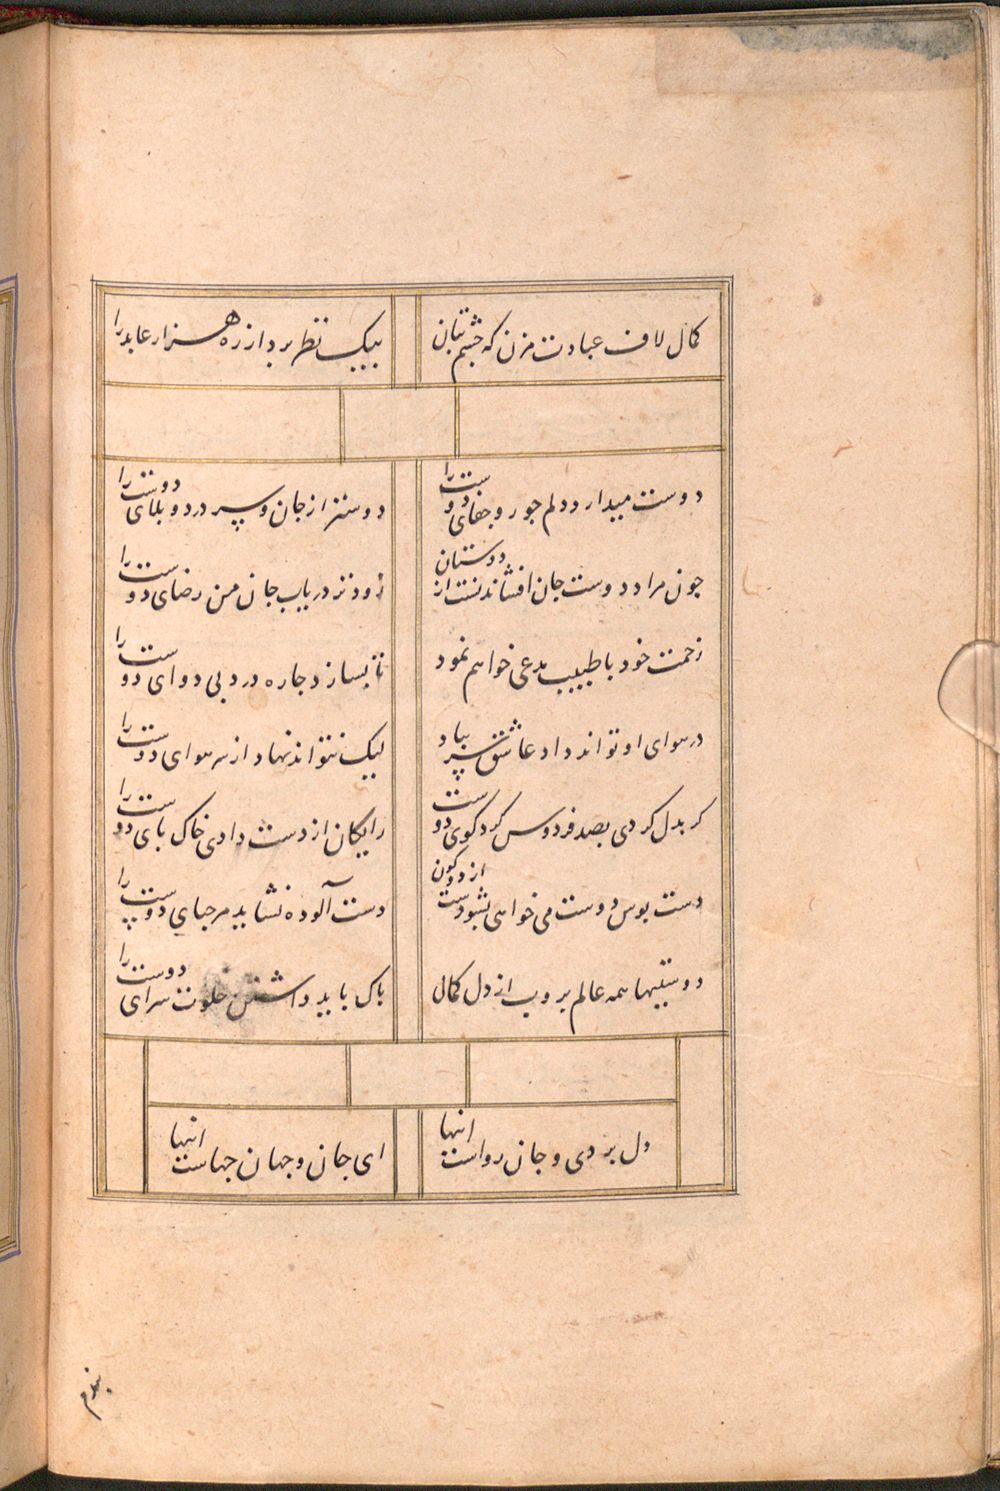 کمال لاف عبادت مزن که چشم بتان
بیک نظر برد از ره هزار عابد را
دوست میدارد دلم جور و جفای دوست را
دوستتر از جان و سر درد و بلای دوست را
چون مراد دوست جان افشاندنست از دوستان
زودتر دریاب جان من رضای دوست را
زحمت خود با طبیب مدعی خواهم نمود
تا بسازد چاره درد بی دوای دوست را
در هوای او تواند داد عاشق سر بباد
لیک نتواند نهاد از سر هوای دوست را
کر بدل کردی بصد فردوس کرد کوی دوست
رایکان از دست دادی خاک بای دوست را
دست بوس دوست می خواهی بشو دست از دو کون
دست آلوده نشاید مرحبای دوست را
دوستیها همه عالم بروب از دل کمال
باک باید داشتن خلوت سرای دوست را
دل بردی و جان رواست اینها
ای جان و جهان جهاست اینها